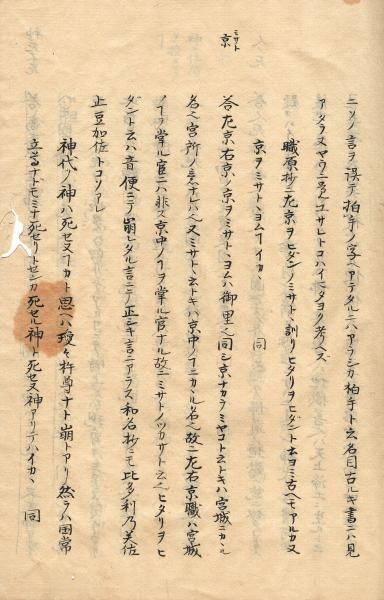 ニソノ言ヲ誤テ拍手ノ字ヘアテタルニハアラシカ拍手ト云名目古ルキ書ニハ見
アタラヌヤウニ号ユサレトコハイマタヨク考ヘズ
職原抄ニ左京ヲヒダンノミサト、訓リヒタリヲヒダント云ヨミ古ヘモアルカ又
京ヲミサト、ヨムフイカヽ 同
京 ミサト
答左京右京ノ京ヲミサト、ヨムハ御里ニ同シ京ナカラミヤコト云トキハ宮城ニカヽル
名ニ宮所ノ意ナレハ也又ミサト、云トキハ京中ノフニカヽル名也故ニ左右京職ハ宮城
ノフヲ掌ル官ニハ非ス京中ノフヲ掌ル官ナル故ニミサトノツカサト云也ヒタリヲヒ
ダント云ハ音便ニテ崩レタル言ニテ正シキ言ニアラス和名抄ニモ比多利乃美佐
止豆加佐トコソアレ
神代ノ神ハ死セヌフカト思ヘハ瓊々杵尊ナト崩トアリ然ラハ国常
立尊ナトモミナ死セリトセンカ死セル神ト死セヌ神アリテハイカヽ 同